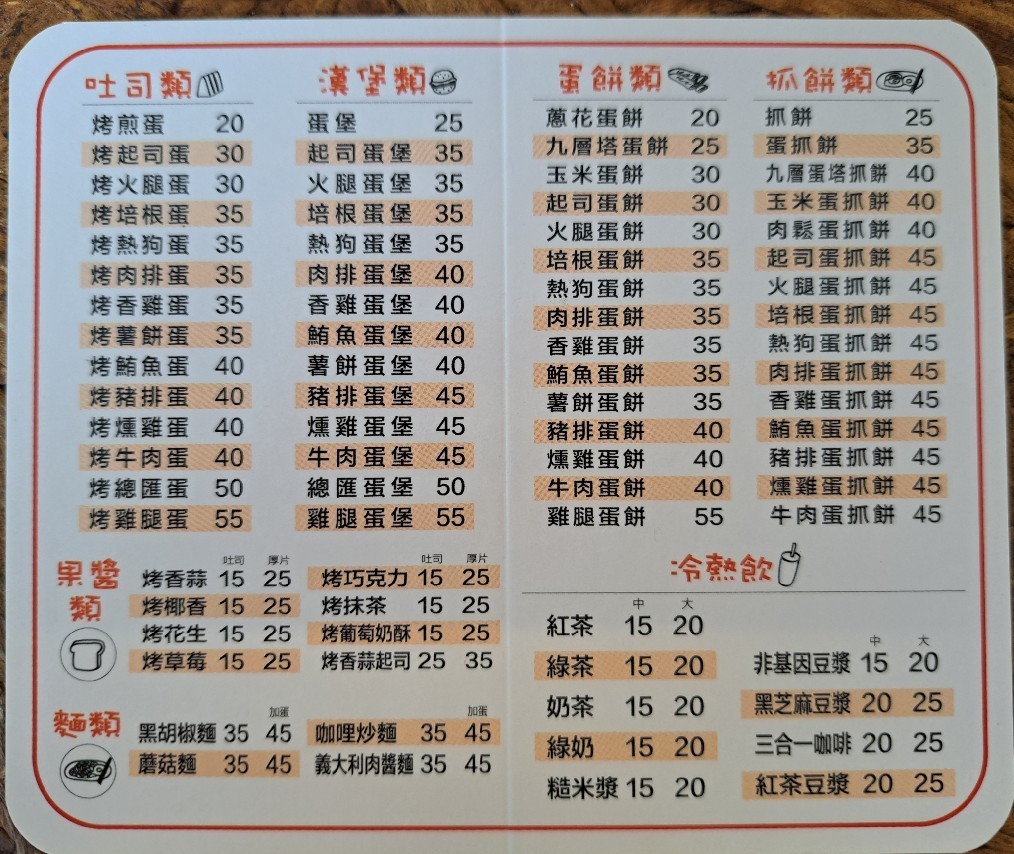 吐司類
烤煎蛋 20
烤起司蛋 30
烤火腿蛋 30
烤培根蛋 35
烤熱狗蛋 35
烤肉排蛋 35
烤香雞蛋 35
烤薯餅蛋 35
烤鮪魚蛋 40
烤豬排蛋 40
烤燻雞蛋 40
烤牛肉蛋 40
烤總匯蛋 50
烤雞腿蛋 55
漢堡類
蛋堡 25
起司蛋堡 35
火腿蛋堡 35
培根蛋堡 35
熱狗蛋堡 35
肉排蛋堡 40
香雞蛋堡 40
鮪魚蛋堡 40
薯餅蛋堡 40
豬排蛋堡 45
燻雞蛋堡 45
牛肉蛋堡 45
總匯蛋堡 50
雞腿蛋堡 55
果醬類
吐司 厚片
烤香蒜 15 25
烤椰香 15 25
烤花生 15 25
烤草莓 15 25
吐司 厚片
烤巧克力 15 25
烤抹茶 15 25
烤葡萄奶酥 15 25
烤香蒜起司 25 35
麵類
加蛋
黑胡椒麵 35 45
蘑菇麵 35 45
加蛋
咖哩炒麵 35 45
義大利肉醬麵 35 45
蛋餅類
蔥花蛋餅 20
九層塔蛋餅 25
玉米蛋餅 30
起司蛋餅 30
火腿蛋餅 30
培根蛋餅 35
熱狗蛋餅 35
肉排蛋餅 35
香雞蛋餅 35
鮪魚蛋餅 35
薯餅蛋餅 35
豬排蛋餅 40
燻雞蛋餅 40
牛肉蛋餅 40
雞腿蛋餅 55
抓餅類
抓餅 25
蛋抓餅 35
九層蛋塔抓餅 40
玉米蛋抓餅 40
肉鬆蛋抓餅 40
起司蛋抓餅 45
火腿蛋抓餅 45
培根蛋抓餅 45
熱狗蛋抓餅 45
肉排蛋抓餅 45
香雞蛋抓餅 45
鮪魚蛋抓餅 45
豬排蛋抓餅 45
燻雞蛋抓餅 45
牛肉蛋抓餅 45
冷熱飲
中 大
紅茶 15 20
綠茶 15 20
奶茶 15 20
綠奶 15 20
糙米漿 15 20
中 大
非基因豆漿 15 20
黑芝麻豆漿 20 25
三合一咖啡 20 25
紅茶豆漿 20 25